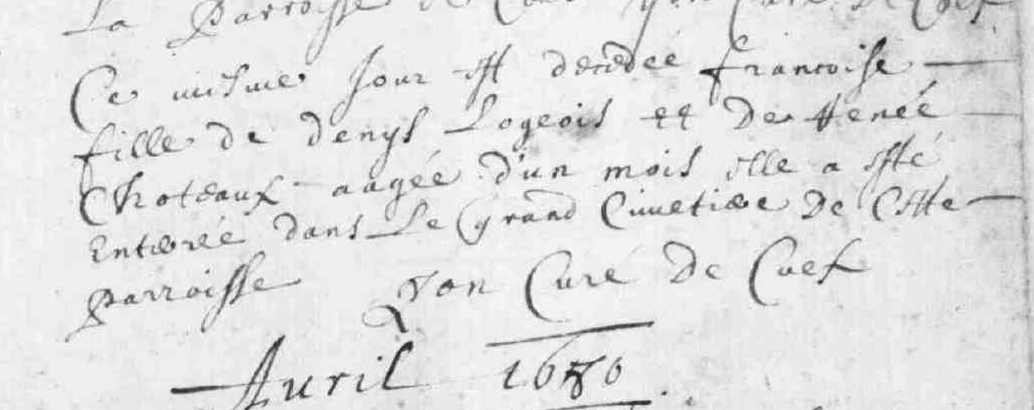 La Parroisse de
Ce mesme jour est decedée francoise
fille de denys Logeois et de Renée
Choteaux aagée d'un mois elle a esté
Enterée dans Le grand Cimetiere De Cette
parroisse yon Curé De Cuef
Avril 1680